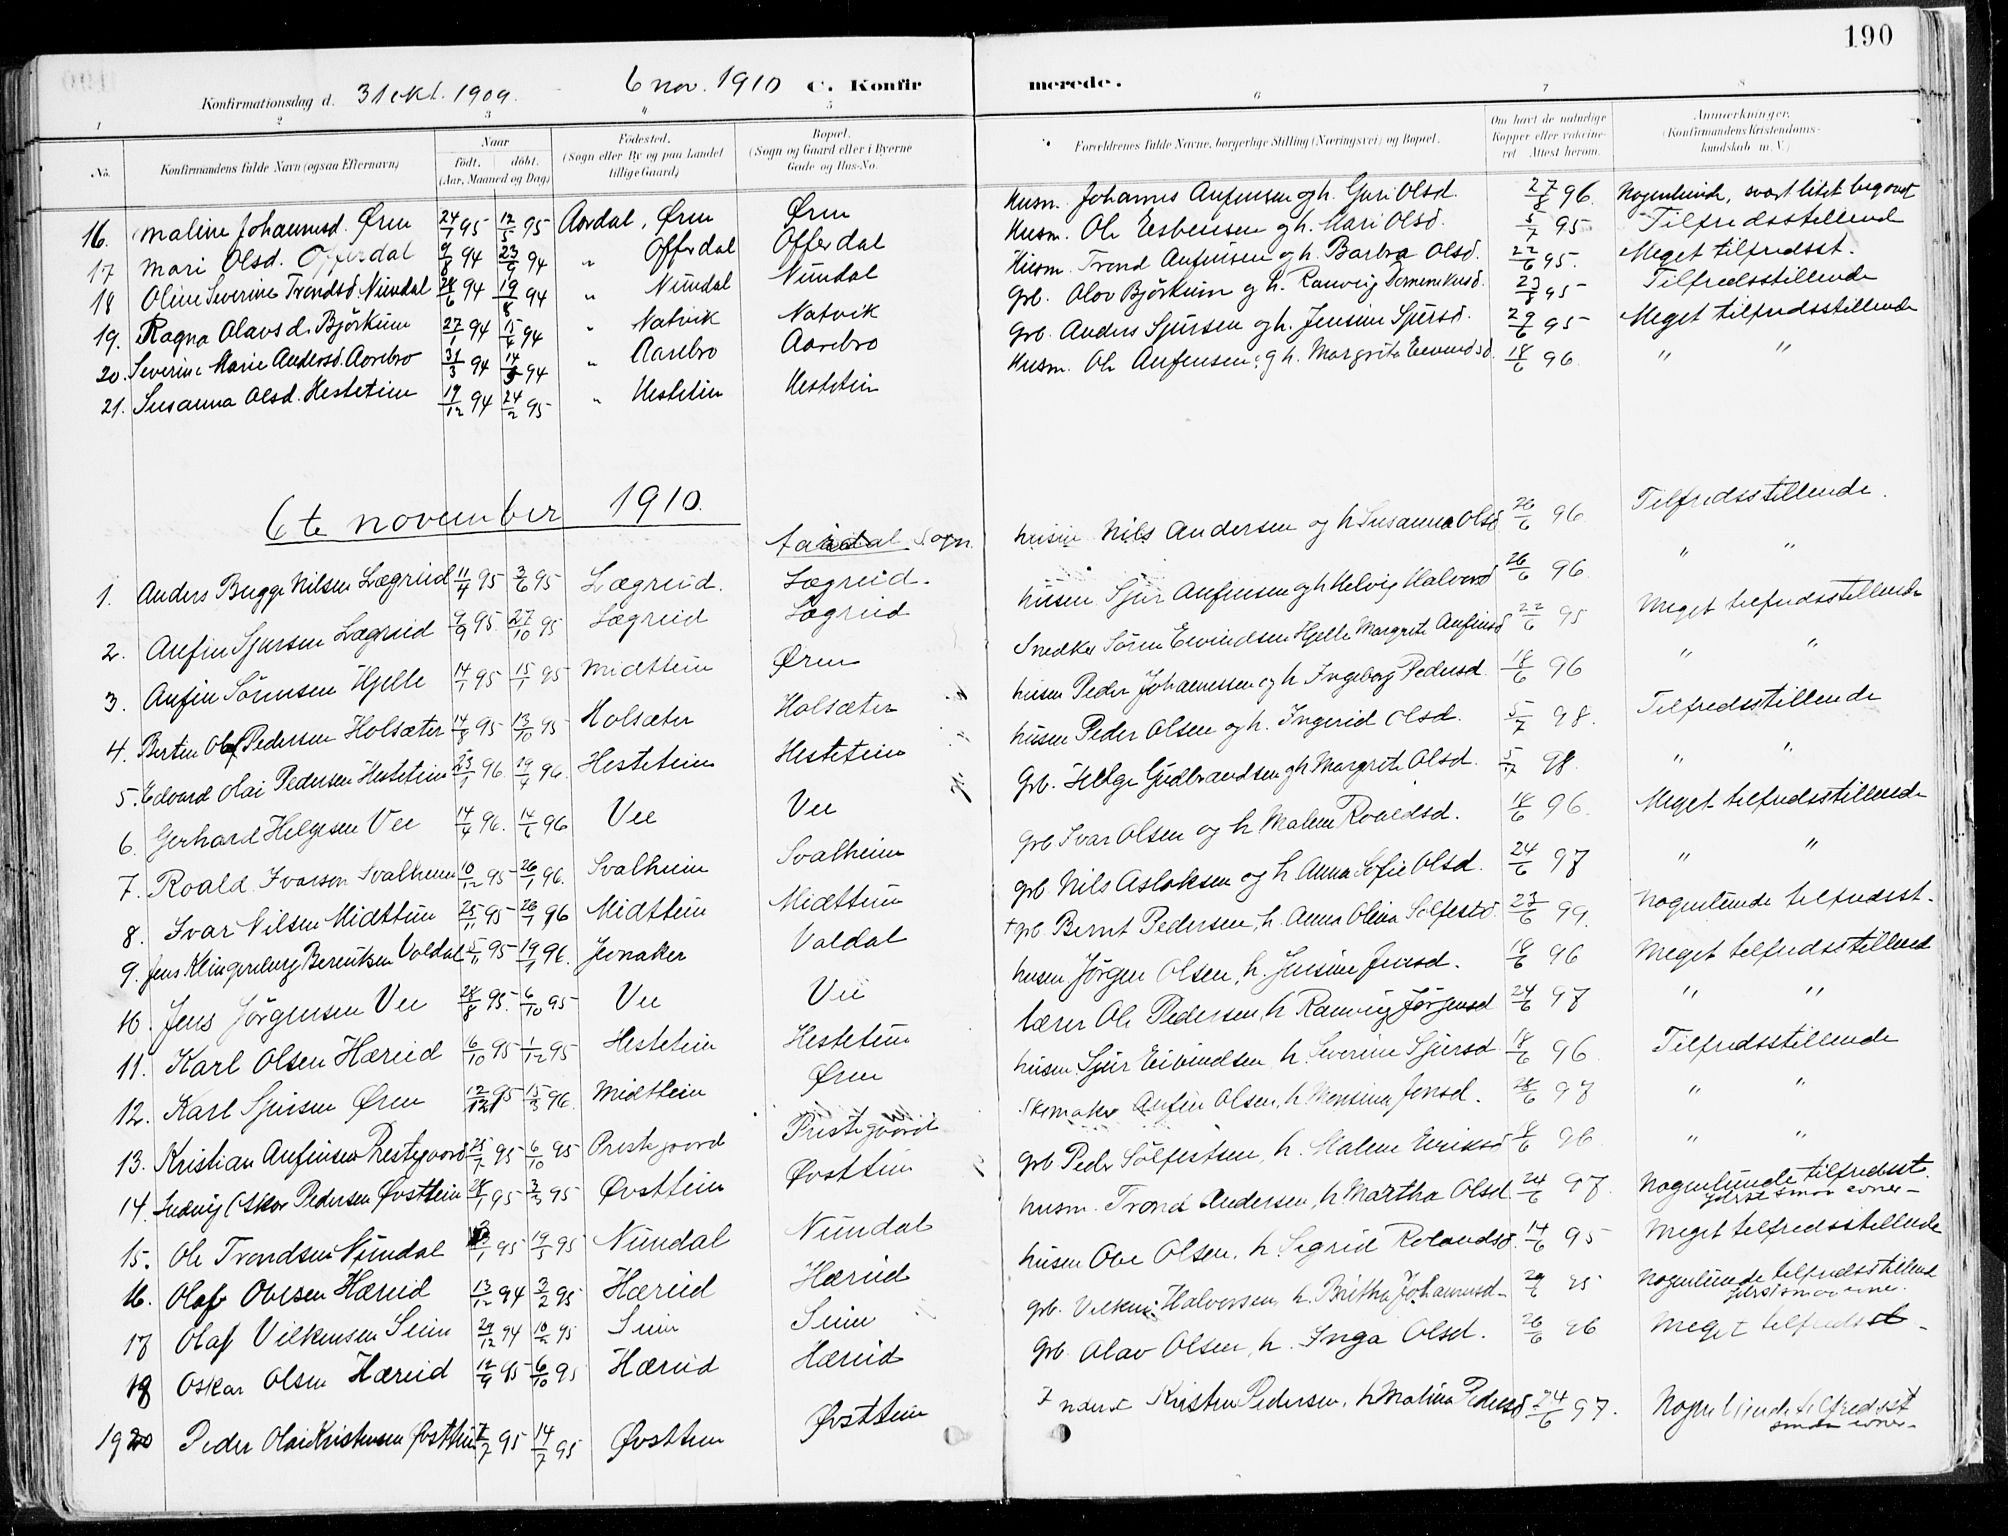 190
Konfirmationsdag d. 31 okt. 1909. 6 nov. 1910 C. Konfirmerede.
1 2 3 4 5 6 7 8
No. Konfirmandens fulde Navn (ogsaa Efternavn) Naar født. døbt. (Aar, Maaned og Dag) Fødested. (Sogn eller By og paa Landet tillige Gaard) Bopæl. (Sogn og Gaard eller i Byerne Gade og Hus-No. Forældrenes fulde Navne, borgerlige Stilling (Næringsvei) og Bopæl. Om havt de naturlige Kopper eller vaccineret. Attest herom. Anmerkninger. (Konfirmandens Kristendomskundskab m. V.)
16. Maline Johannesd. Øren 24/1 95 12/5 95 Aardal, Øren Øren Husm. Johannes Anfinsen og h. Guri Olsd. 27/8 96 Nogenlunde, svært litet begavet
17 Mari Olsd. Offerdal 9/8 94 23/9 94 " Offerdal Offerdal Husm. Ole Esbensen og h. Mari Olsd. 5/7 95 Tilfredsstillende
18 Oline Severine Trondsd. Nundal 28/6 94 19/8 94 " Nundal Nundal Husm. Trond Anfinsen og h. Barbra Olsd. 22/6 95. Meget tilfredsst.
19. Ragna Olavsd. Bjørkum 27/1 94 15/4 94 " Natvik Natvik Grb. Olav Bjørkum og h. Ranveig 23/8 95 Tilfredsstillende
20. Severine Marie Andersd. Aarebro 31/3 94 14/5 94 " Aarebro Aarebro Grb. Anders Sjursen og h. Jensine Sjursd. 29/6 95 Meget tilfredsstillende
21. Susanna Olsd. Hestetun 19/12 94 24/2 95 " Hestetun Hestetun Husm. Ole Anfinsen og h. Margrita Eivindsd. 18/6 96 " "
6te november 1910.
Aardal Sogn.
1. Anders Bugge Nilsen Lægreid 11/4 95 3/6 95 Lægreid. Lægreid. husm Nils Andersen og h Susanna Olsd 26/6 96 Tilfredsstillende.
2. Anfin Sjursen Lægreid 9/9 95 27/10 95 Lægreid Lægreid husm Sjur Anfinsen og h Helvig Halvorsd 26/6 96 " "
3. Anfin Sörensen Hjelle 14/1 95 15/1 95 Midttun Øren Snedker Sören Eivindsen Hjelle Margrite Anfinsd 22/6 95 Meget tilfredsstillende
4. Bertin Olaf Pedersen Holsæter 14/8 95 13/10 95 Holsæter Holsæter husm Peder Johannessen og h Ingeborg Pedersd. 18/6 96 " "
5. Edvard Olai Pedersen Hestetun 23/1 96. 19/4 96. Hestetun Hestetun husm Peder Olsen og h. Ingerid Olsd. 5/7 98. Tilfredsstillende
6. Gerhard Helgesen Vee 14/4 96. 14/6 96 Vee Vee Grb. Helge Gudbrandsen og h Margrite Olsd. 5/7 98. " "
7. Roald Ivarson Svalheim 10/12 95 26/1 96. Svalheim Svalheim grb Ivar Olsen og h Malene Roaldsd. 18/6 96. Meget tilfredsstillende
8. Ivar Nilsen Midttun 25/11 95 26/1 96 Midttun Midttun grb Nils Aslaksen og h. Anna Sofie Olsd. 24/6 97 " "
9. Jens Klingenberg Berentsen Valdal 5/11 95 19/1 96. Jevnaker Valdal + grb. Bernt Pedersen, h. Anna Olina Solfestd. 23/6 99. Nogenlunde tilfredsst.
10. Jens Jørgensen Vee 28/8 95. 6/10 95 Vee Vee husm Jørgen Olsen, h. Jensine Jensd. 18/6 96 Meget tilfredsstillend
11. Karl Olsen Hæreid 6/10 95 1/12 95 Hestetun Hestetun lærer Ole Pedersen, h Ranveig Jørgensd 24/6 97 " "
12. Karl Sjursen Øren 12/12 95 15/3 96. Midttun Øren husm Sjur Eivindsen h. Severine Sjursd 18/6 96. Tilfredsstillende
13. Kristian Anfinsen Prestegaard 25/7 95 6/10 95 Prestegaard Prestegaard Skomaker Anfin Olsen, h Monsina Jonsd. 28/6 97 " "
14. Ludvig Oskar Pedersen Øvsttun 28/1 95 3/3 95 Øvsttun Øvsttun grb Peder Solfestsen, h. Malene Eriksd 8/6 96 " "
15. Ole Trondsen Nundal 95 19/5 95 Nundal Nundal husm. Trond Andersen, h Martha Olsd 24/6 97. Nogenlunde tilfredsst.
smaa evner—
16. Olaf Ovesen Hæreid 13/12 94 3/2 95 Hæreid Hæreid husm Ove Olsen, h. Sigrid Rolandsd. 14/6 95 Meget tilfredsstillende
17 Olaf Vilkensen Seim 29/12 94 10/2 95 Seim Seim grb. Vilken Halvorsen, h. Britha Johannesd. 95 Nogenlunde tilfredsstillend
18 Oskar Olsen Hæreid 12/9 95 6/10 95 Hæreid Hæreid Grb. Olav Olsen, h. Inga Olsd. 26/6 96 Meget tilfredsst.
19 20 Peder Olai Kristensen Øvsttun 7/7 95 14/7 95 Øvsttun Øvsttun Kristen Pedersen, h Malina Pedersd 24/6 97. Nogenlunde tilfredsst
smaa evner—